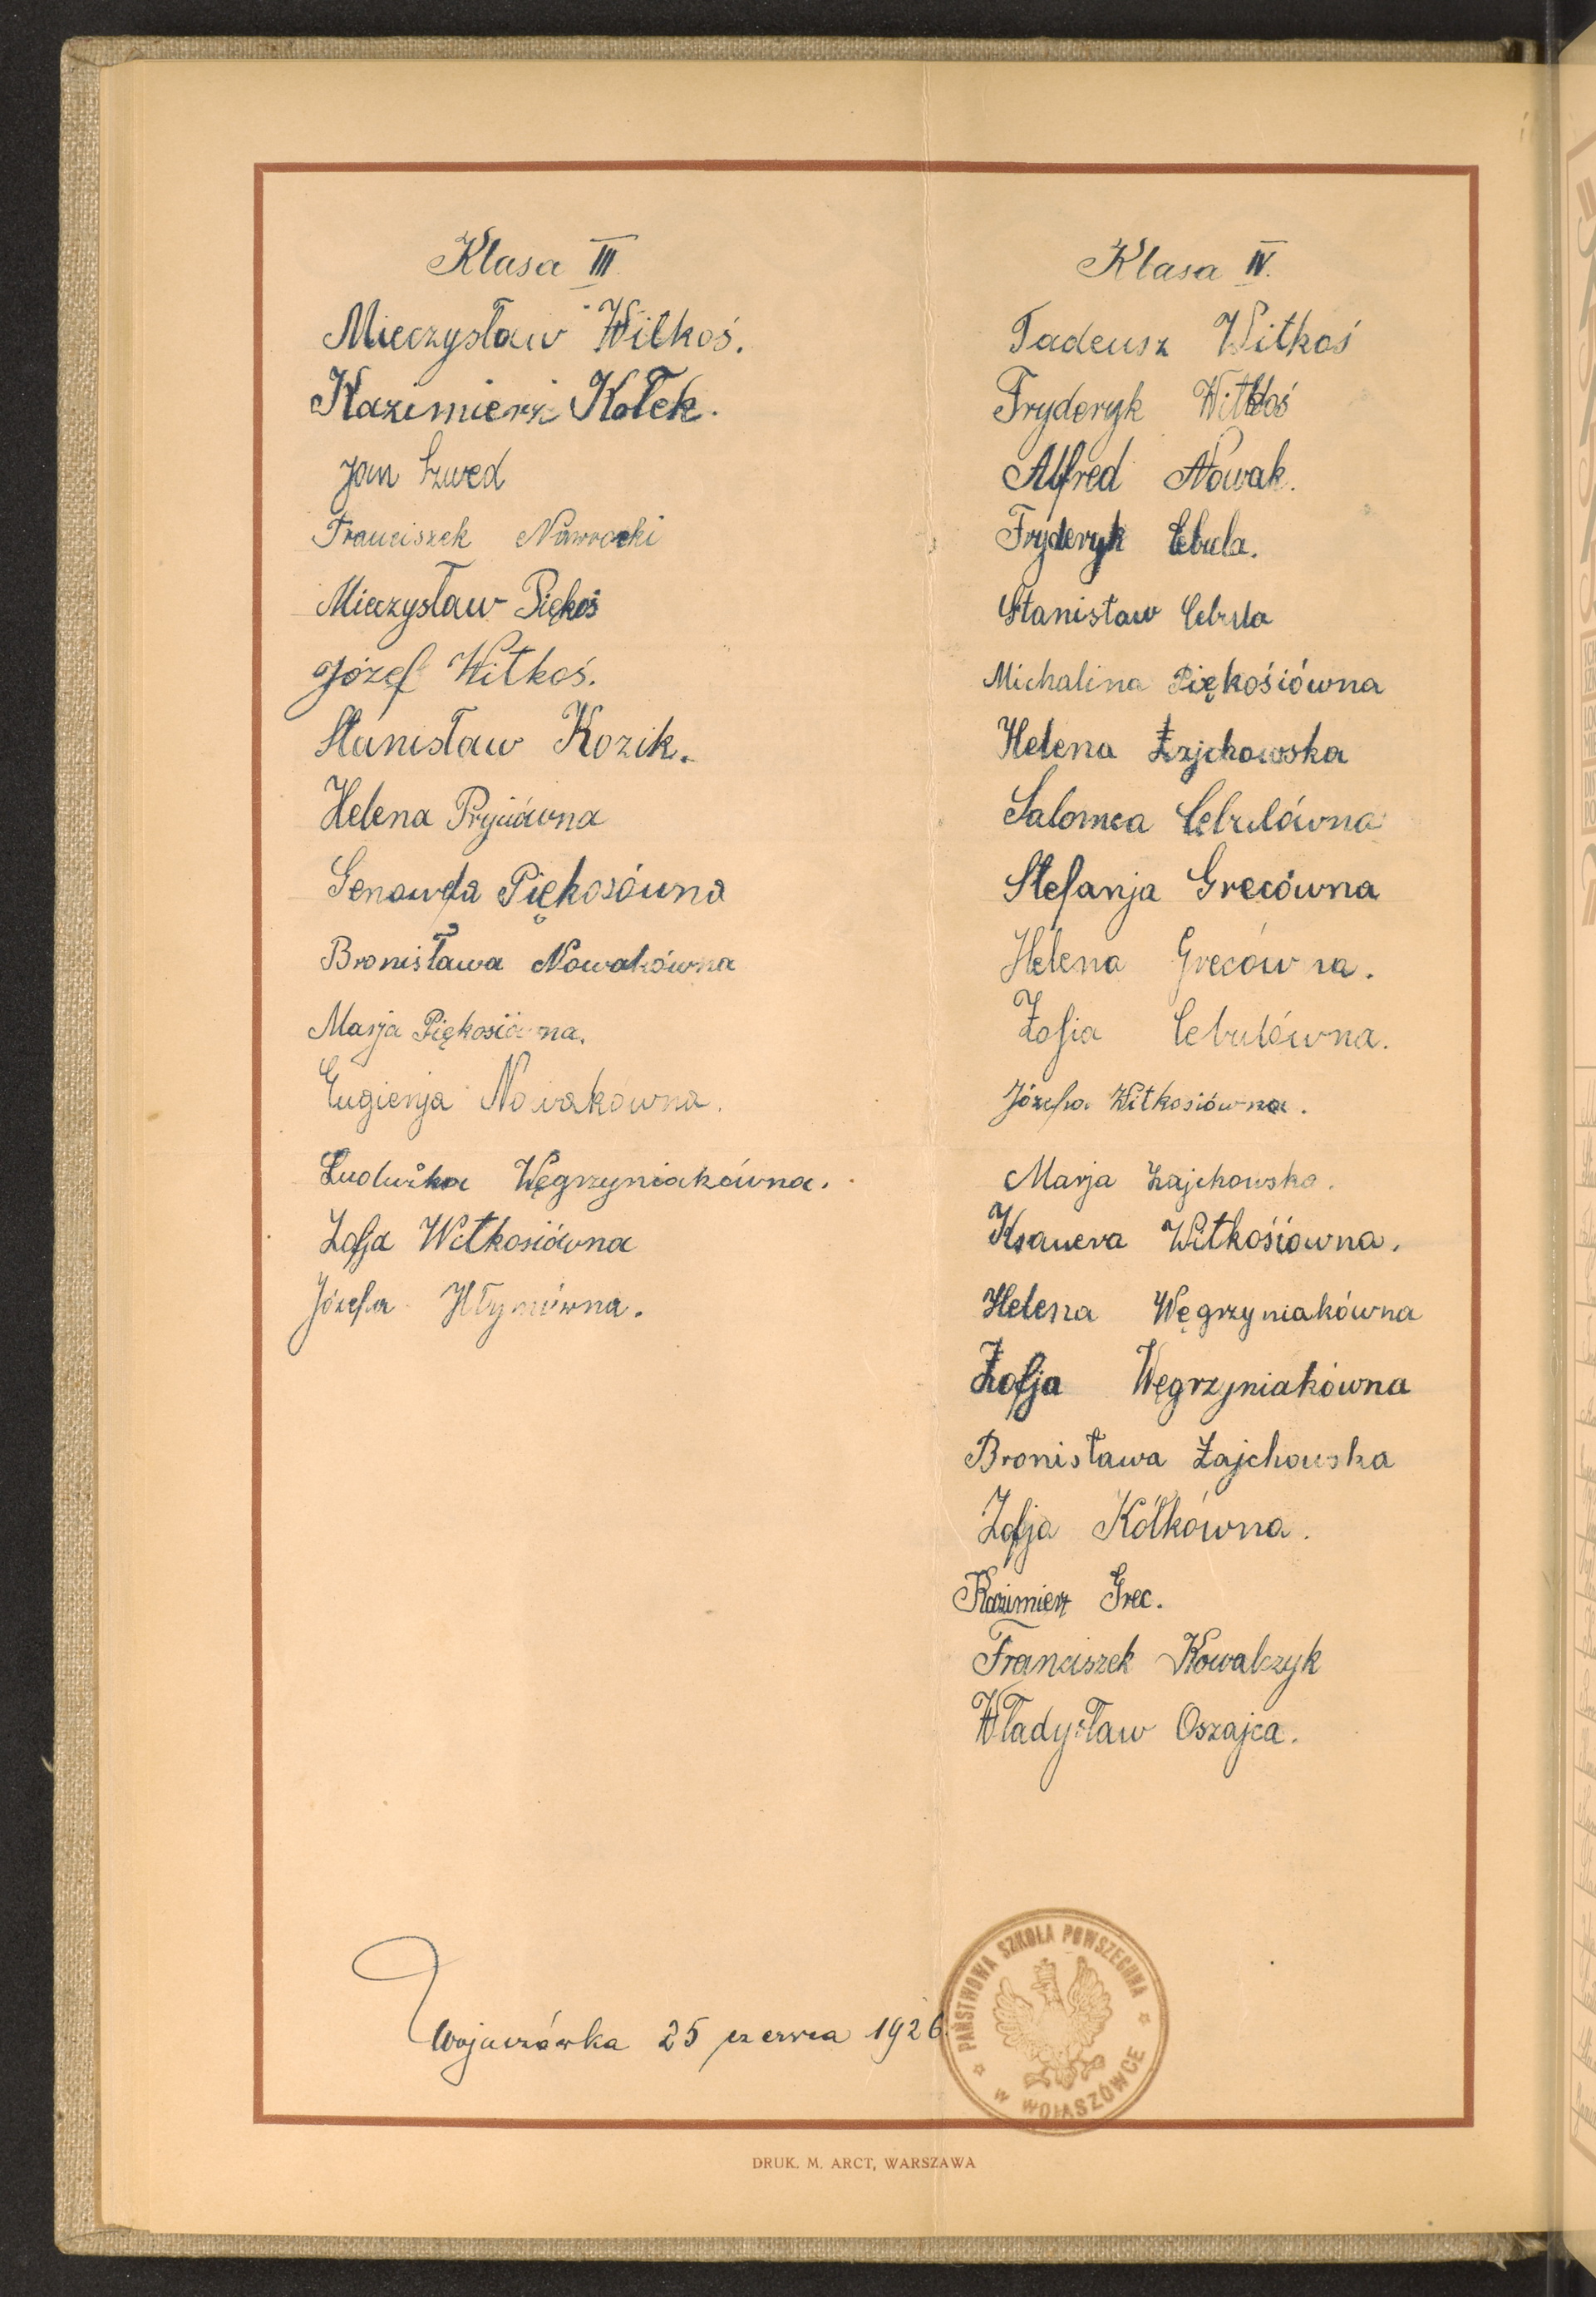 Klasa III
Mieczysław Witkoś.
Kazimierz Kołek.
Jan Szwed
Franciszek Nawrocki
Mieczysław Piękoś
Józef Witkoś.
Stanisław Kozik.
Helena
Genowefa Piękosówna
Bronisława Nowakówna
Marja Piękosiówna.
Eugienja Nowakówna.
Ludwika Węgrzyniakówna.
Zofja Witkosiówna
Józefa
Klasa IV.
Tadeusz Witkoś
Fryderyk Witkoś
Alfred Nowak.
Fryderyk Cebula.
Stanisław Cebula
Michalina Piękośiówna
Helena Zajchowska
Salomea Cebulówna
Stefanja Grecówna
Helena Grecówna.
Zofia Cebulówna.
Józefa Witkosiówna.
Marja Zajchowska.
Ksawera Witkośiówna.
Helena Węgrzyniakówna
Zofja Węgrzyniakówna
Bronisława Zajchowska
Zofja Kółkówna.
Kazimierz Grec.
Franciszek Kowalczyk
Władysław Oszajca.
Wojaszówka 25 czerwca 1926
PAŃSTWOWA SZKOŁA POWSZECHNA
W WOJASZÓWCE
DRUK. M. ARCT, WARSZAWA